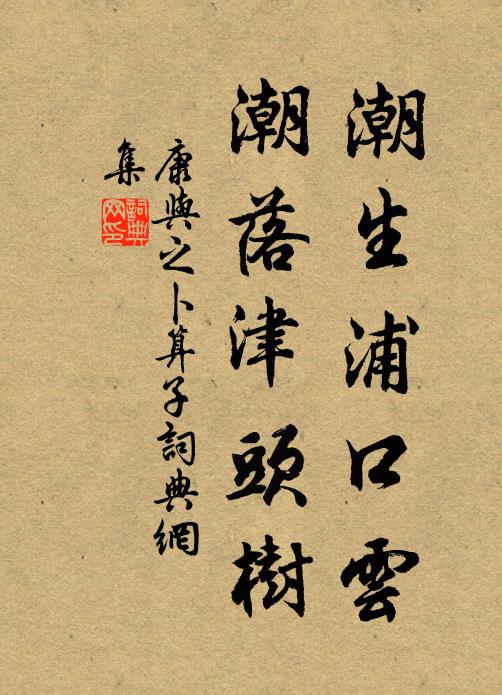 潮生浦口雲
潮落津頭樹
康與之卜算子詞典網
集
詞典
网印